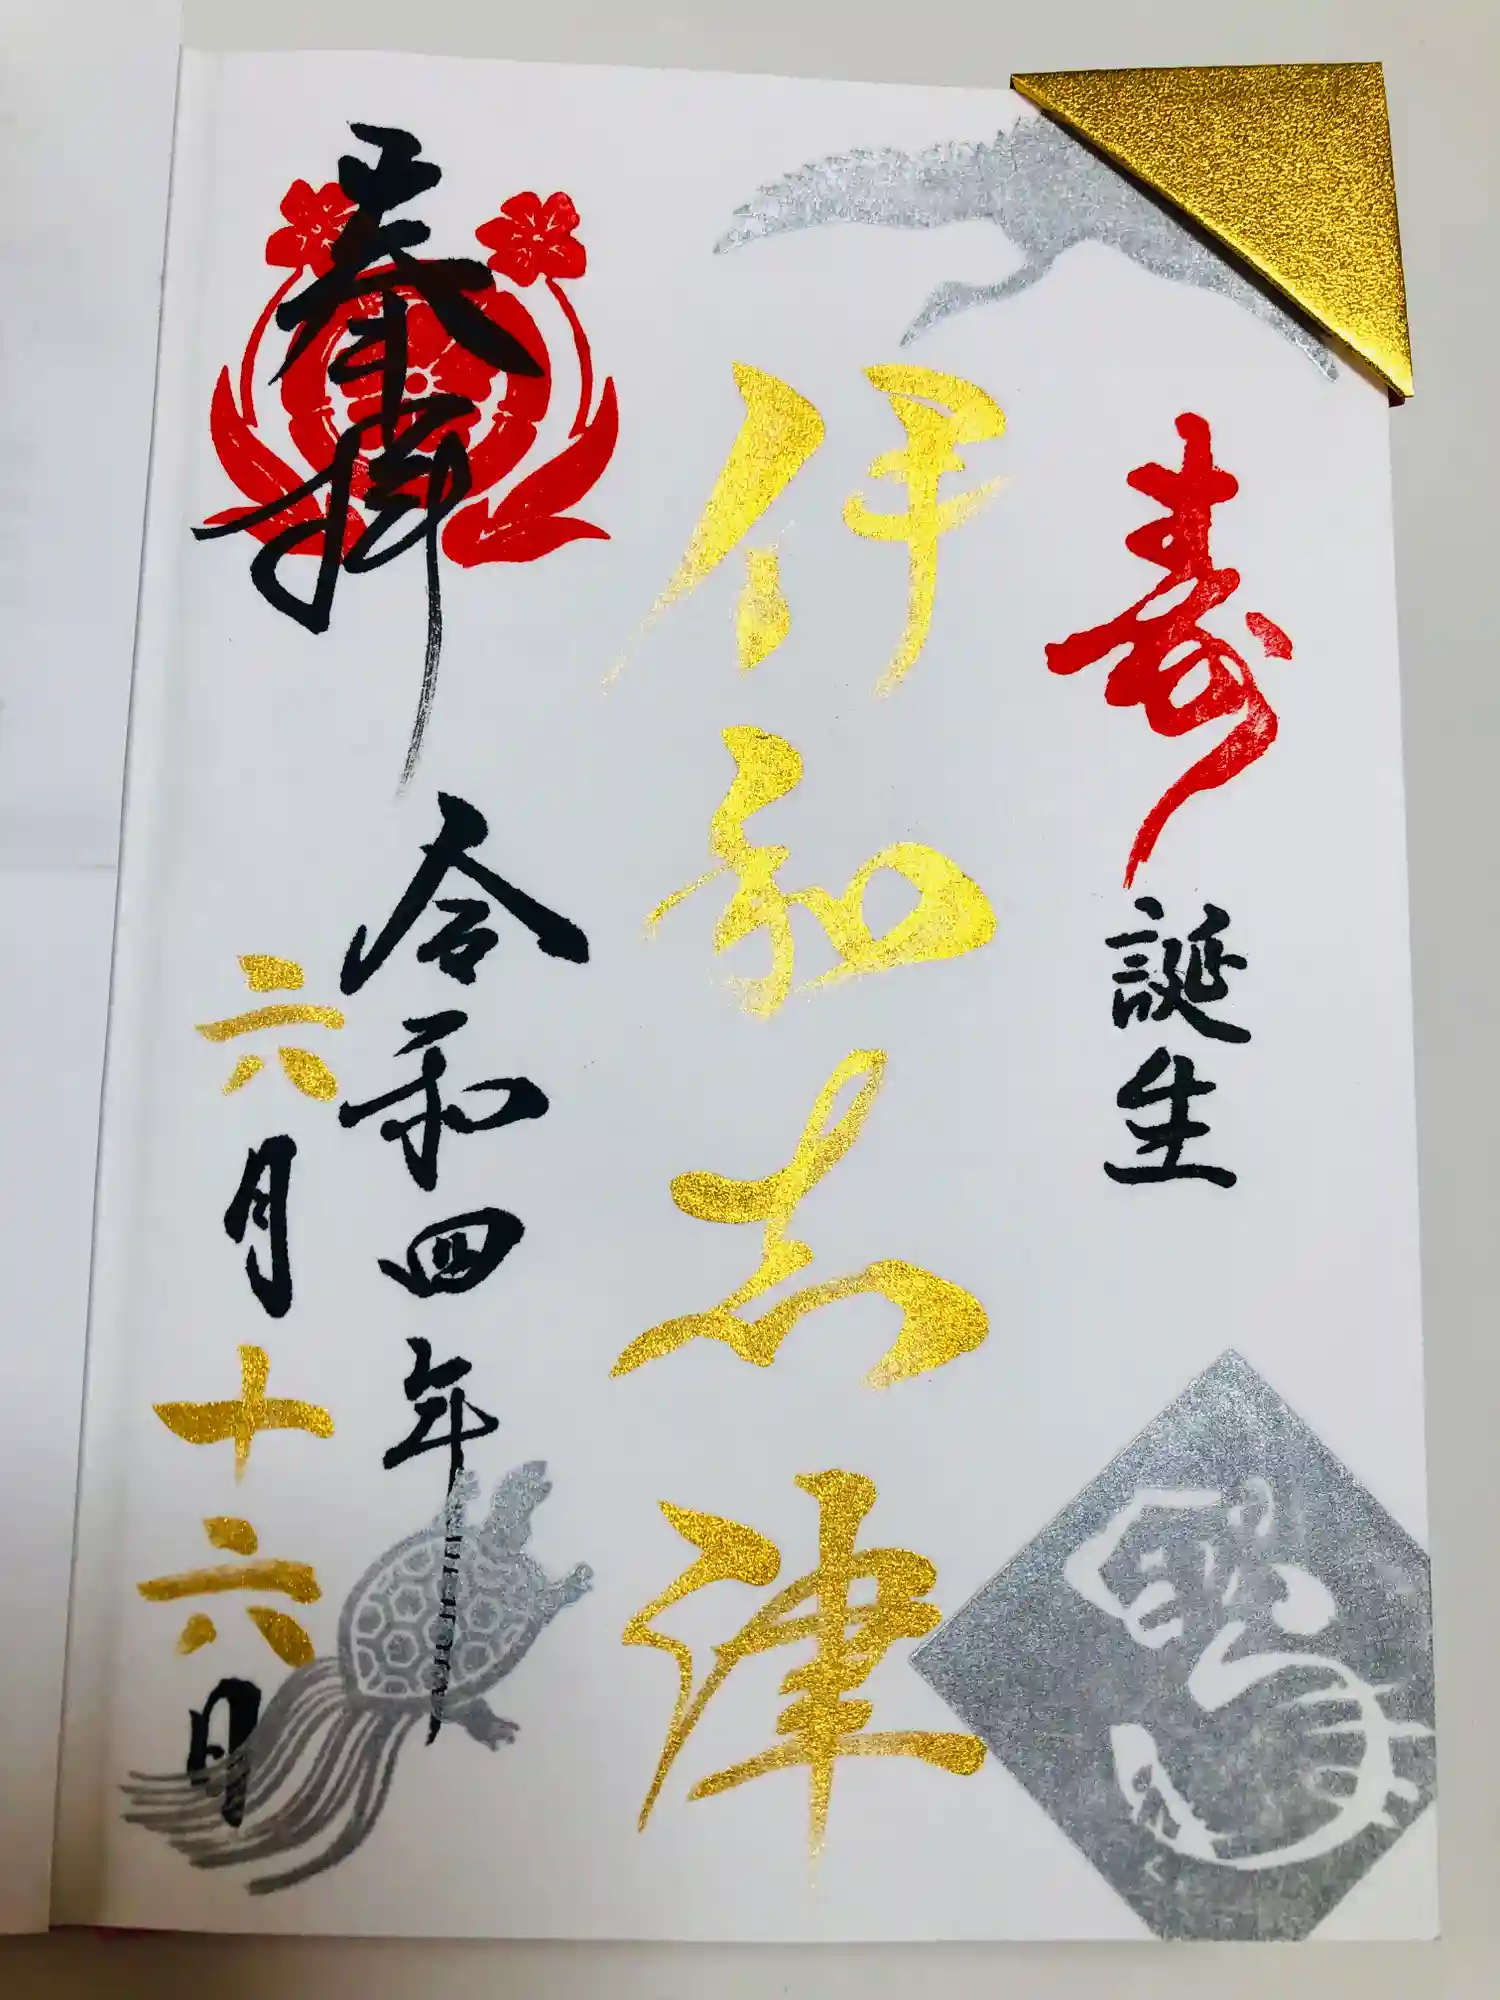 寿 誕生
伊和志津
奉拝
令和四年
六月十六日